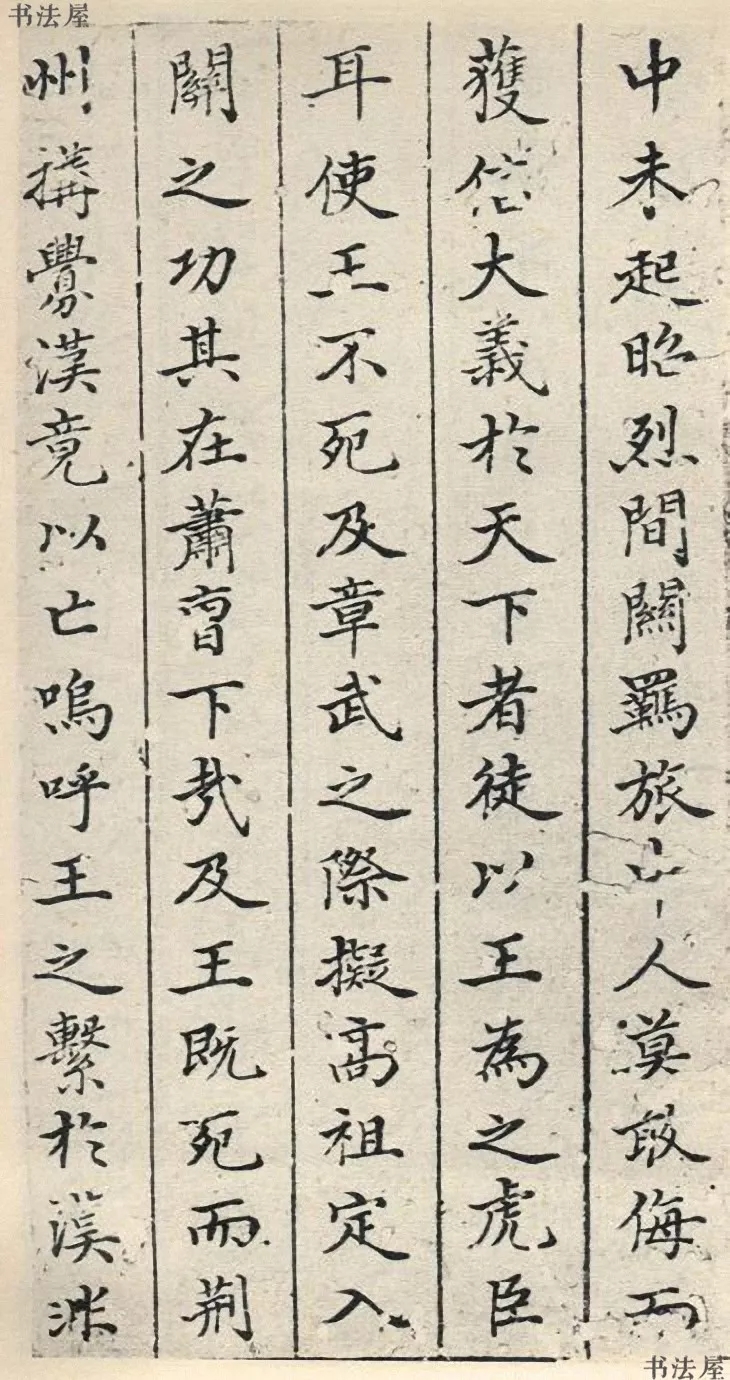 书法屋
中未起昭烈間關羈旅人莫敢侮而
獲信大義於天下者徒以王為之虎臣
耳使王不死及章武之際擬高祖定入
關之功其在蕭曹下哉及王既死而荆
州搆釁漢竟以亡嗚呼王之繫於漢
书法屋